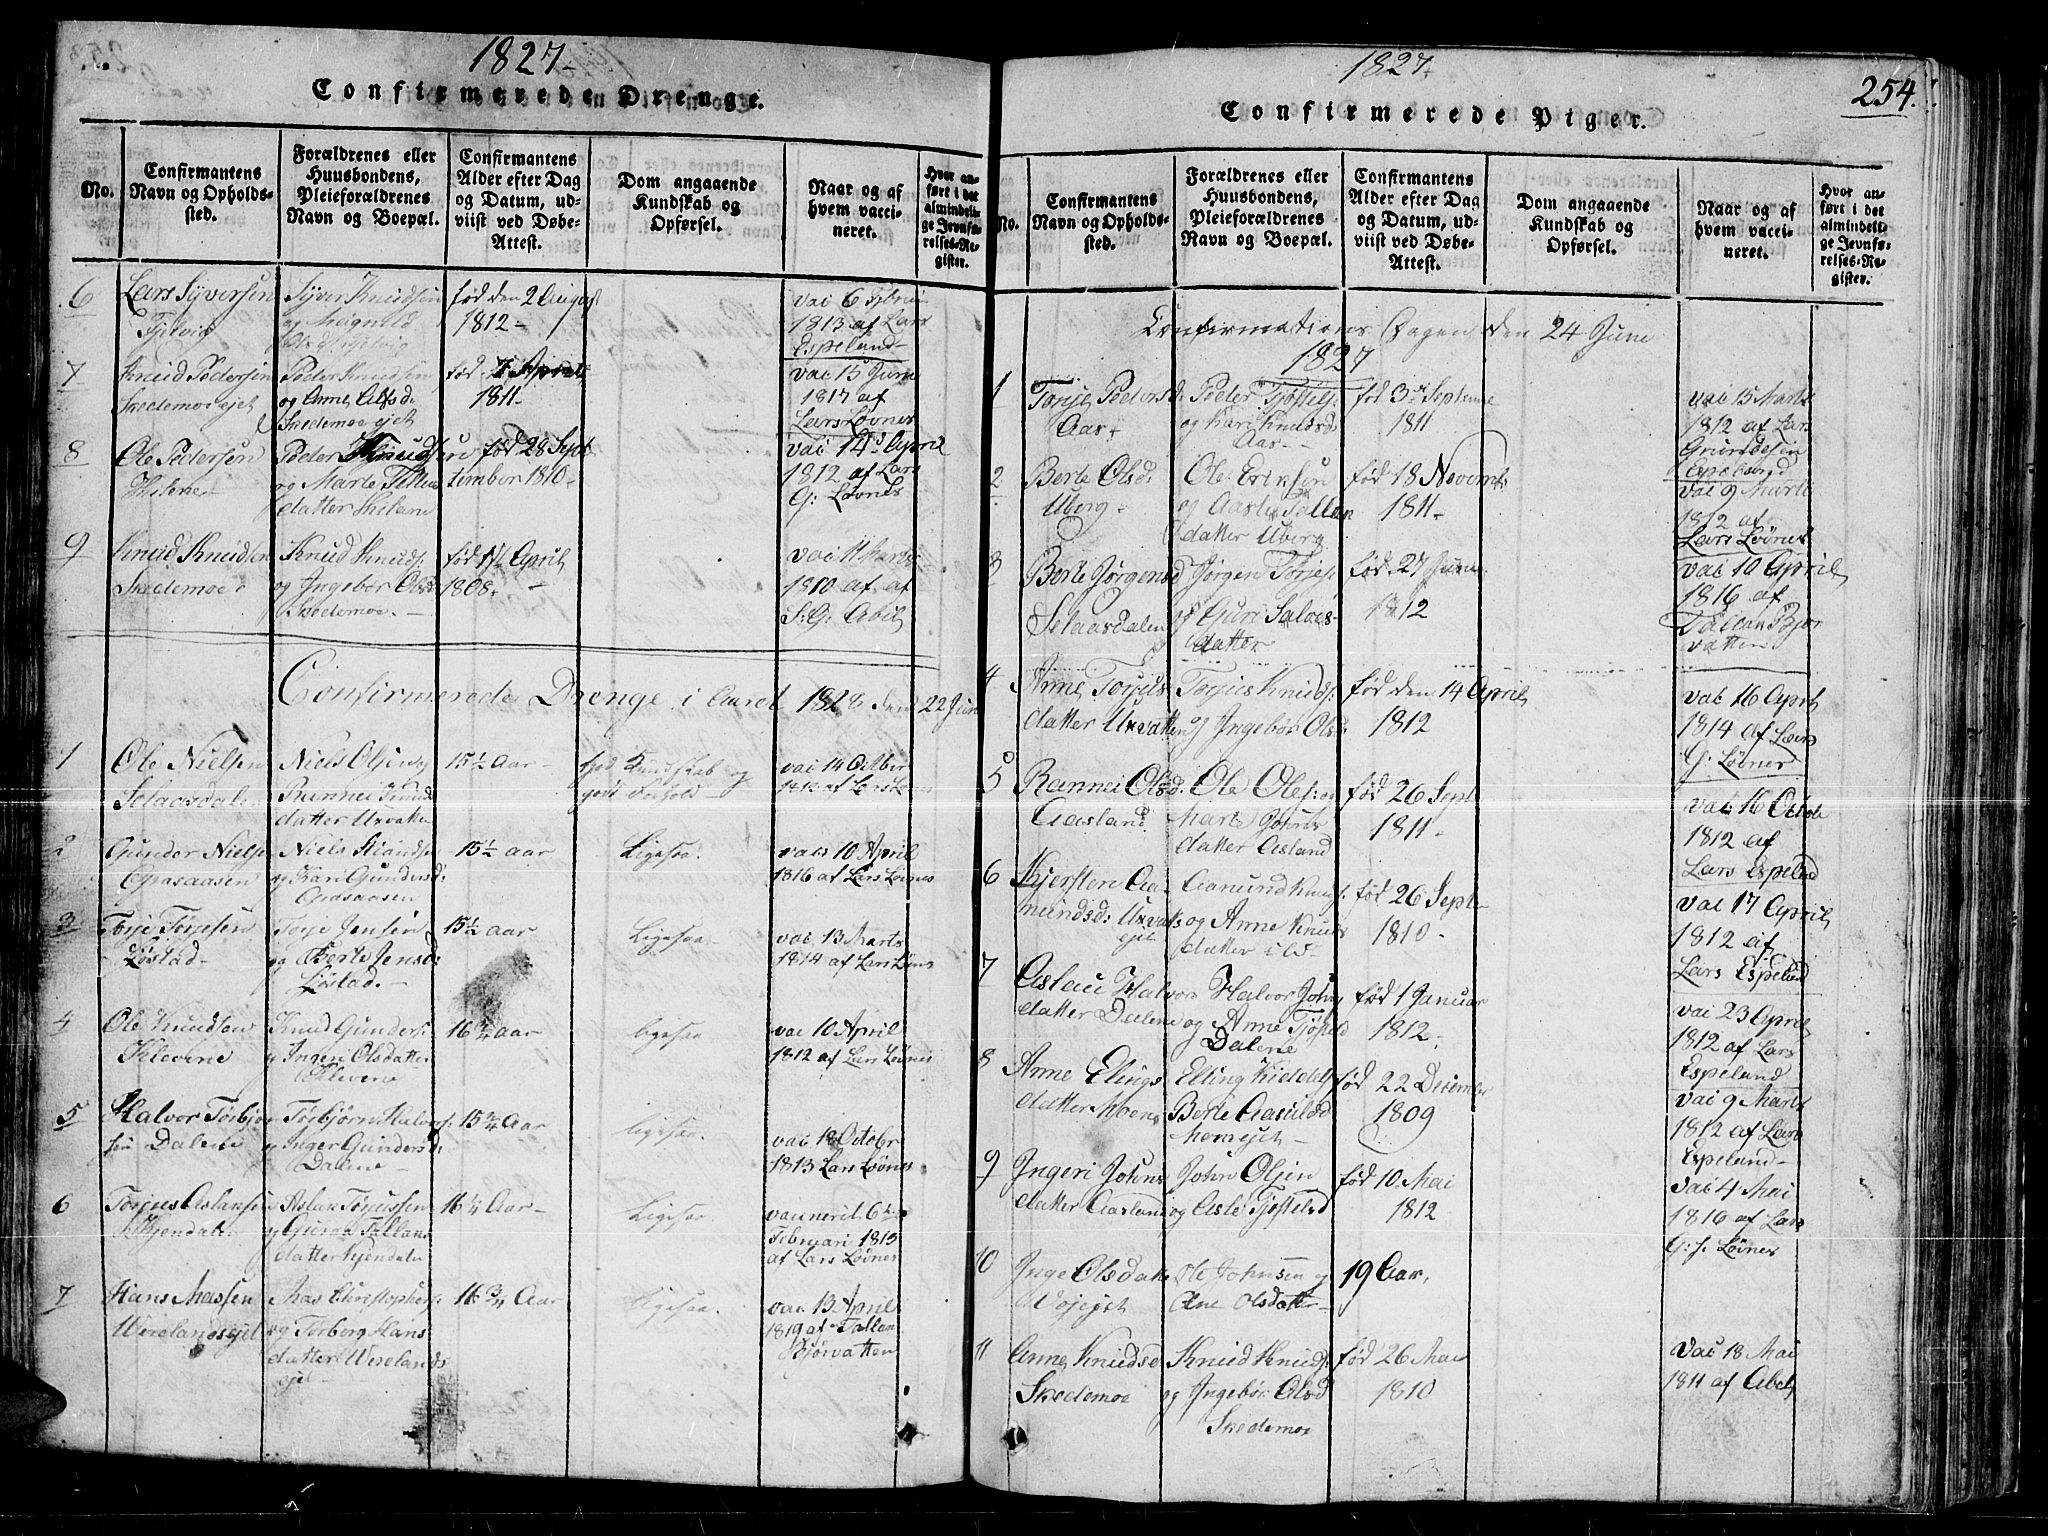 1827-
Confirmerede Drenge.
No.
Confirmantens Navn og Opholdssted.
Forældrenes eller Huusbondens, Pleieforældrenes Navn og Boepæl.
Confirmantens Alder efter Dag og Datum, udviist ved Døbe-Attest.
Dom angaaende Kundskab og Opførsel.
Naar og af hvem vaccineret.
Hvor anført i det almindelige Jevnførelses-Register.
6 Lars Syversen
Syver Knudsen og
født den 2 August 1812-
vac 6 1813 af Lars Espeland-
7 Knud Pedersen Skedemoe ejet
Peder Knudsen og Anne Skedemoe ejet
fød 7 April 1811-
vac 15 Juni 1817 af Lars Løvnes
8 Ole Pedersen
Peder Knudsen og Marte datter
fød 28 September 1810-
vac 14 April 1812 af Lars G: Løvnes
9 Knud Knudsen Skedemoe
Knud Knuds: og Ingebor Olsd Skedemoe.-
fød 17 April 1808.-
vac 11 Marts 1810 af af S: G: Abel
Confirmerede Drenge i Aaret 1828 den 22 Juni
1 Ole Nielsen Selaasdalen
Niels Olsen og datter Uxvatten
15½ Aar-
god Kundskab og godt Forhold
vac 14 Octber af Lars
2 Gunder Nielsen
Niels og Kari Gundersd:
15½ Aar
Ligesaa.
vac 10 April 1816 af Lars Løvnes
3 Torje Torjesen Løstad-
Torje Jensen og Berte Jensd: Løstad.-
15½ Aar
Ligesaa-
vac 13 Marts 1814 af Lars Løvnes
4 Ole Knudsen Klevene
Knud Gunders: og Ingeri Olsdatter Klevene
16¼ Aar
ligesaa
vac 10 April 1812 af Lars Løvnes
5 Halvor Torbjørnsen Dalene
Torbjørn Halvors: og Inger Gundersd: Dalene-
15¾ Aar
ligesaa.
vac 18 Octobr 1813 Lars Løvnes
6 Torjus Aslaksen Kjendal
Aslak Torjussen og Tallaksdatter Kjendale
16¼ Aar-
Ligesaa.
vacineret 6 Februari 1815 af Lars Løvnes
7 Hans Massen Werelandsejet
Mas Christophers: og Torborg Hansdatter Werelandsejet-
16¾ Aar
Ligesaa
vac 13 April 1819 af Tallak Bjørvatten
1827.
254.
Confirmerede Piger.
No.
Confirmantens Navn og Opholdssted.
Forældrenes eller Huusbondens, Pleieforældrenes Navn og Boepæl.
Confirmantens Alder efter Dag og Datum, udviist ved Døbe-Attest.
Dom angaaende Kundskab og Opførsel.
Naar og af hvem vaccineret.
Hvor anført i det almindelige Jevnførelses-Register.
Confirmations Dagen den 24 Juni
1827
1 Torje Pedersd: Aas-
Peder Tjøstels: og Kari Knudsd: Aas-
fød 3 September 1811
vac 15 Marts 1812 af Lars
2 Berte Olsd: Uberg-
Ole Eriksen og Aaste Tallaksdatter Uberg
fød 18 Novemb: 1811-
vac 9 Marts 1812 af Lars Løvnes
3 Berte Jørgensd Selaasdalen
Jørgen Torjes: og Guri Salvesdatter
fød 27 Juni 1812
vac 10 April 1816 af Tallak Bjørvatten
4 Anne Torjusdatter Uxvatten
Torjus Knuds: og Ingebor Olsd
fød den 14 April 1812
vac 16 April 1814 af Lars G: Løvnes
5 Rannei Olsd: Aasland
Ole Oles: og Marte Johnsdatter Aasland
fød 26 Sept 1811-
vac 16 Octob 1812 af Lars Espeland
6 Kjersten Aamundsd: Uxvatsejet
Aamund Knuds: og Anne Knudsdatter
fød 26 Sept 1810-
vac 17 April 1812 af Lars Espeland
7 Aslau Halvorsdatter Dalene
Halvor Johns: og Anne Tjøstelsd Dalene
fød 1 Januar 1812.
vac 23 April 1812 af Lars Espeland
8 Anne Elingsdatter Moene
Elling Kiddels: Berte Aasulsd Moenejet-
fød 22 December 1809
vac 9 Marts 1812 af Lars Espeland-
9 Ingeri Johnsdatter Aasland
John Olsen og Asle Tjøstelsd
fød 10 Mai 1812
vac 4 Mai 1816 af Lars G: s. Løvnes
10 Inge Olsdatter
Ole Johnsen og Ane Olsdatter-
19 Aar,
11 Anne Knudsd Skedemoe
Knud Knuds: og Ingebor Olsd Skedemoe
fød 26 Mai 1810
vac 18 Mai 1811 af Abel